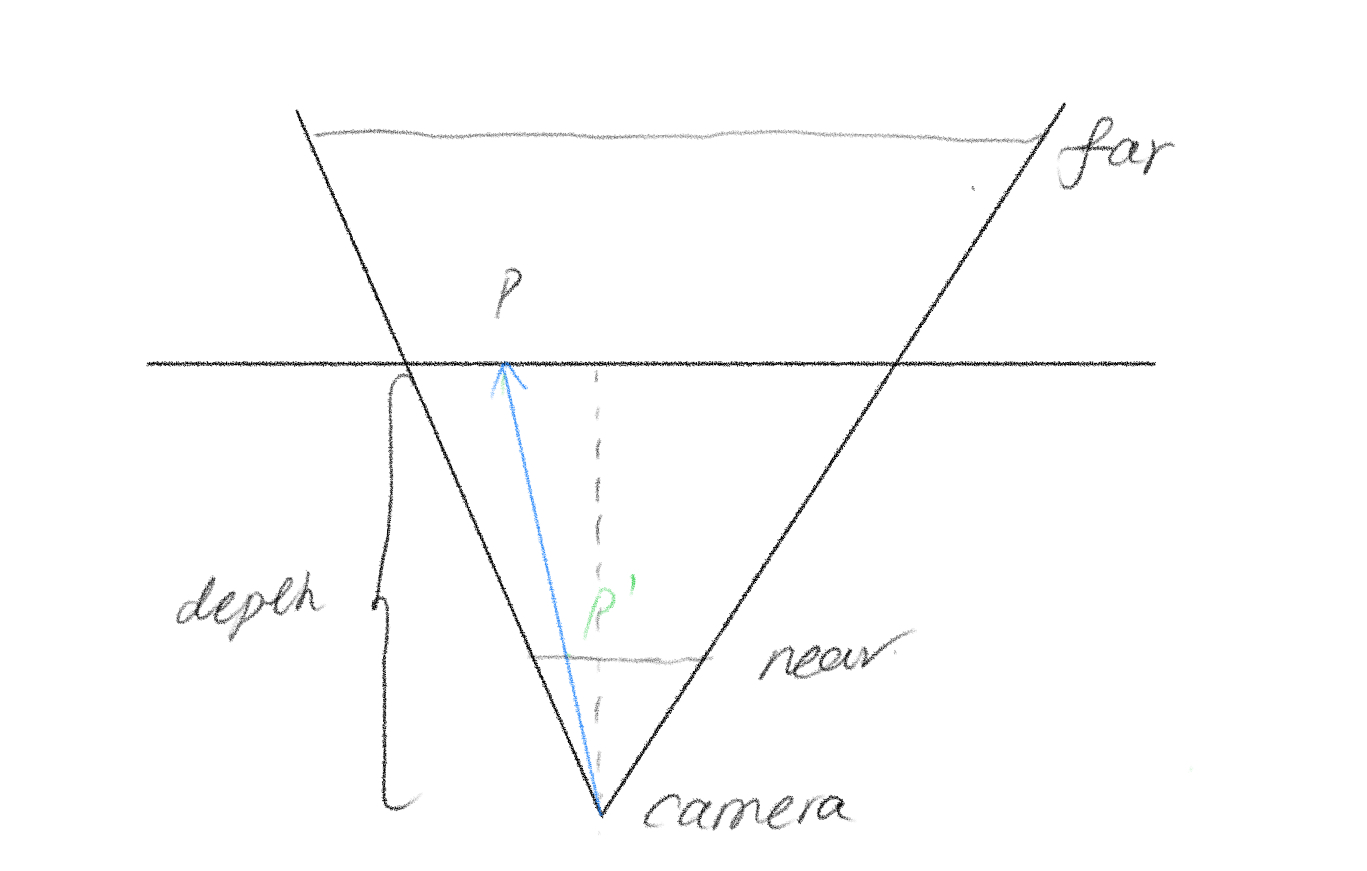 far
P
depth
P'
near
camera